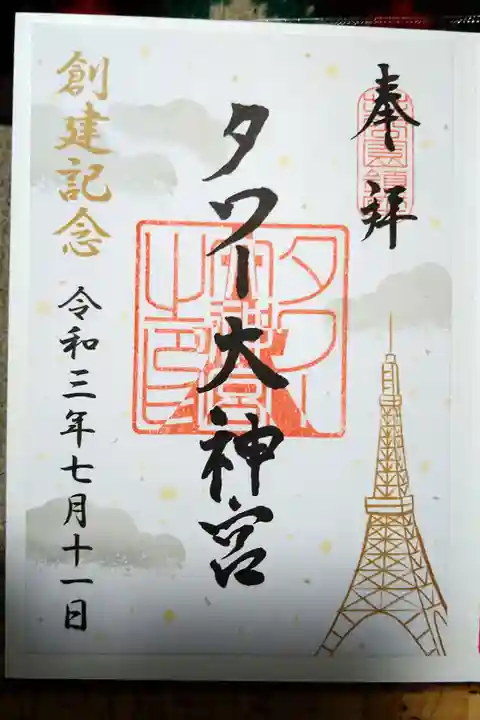 奉拝
タワー大神宮
創建記念
令和三年七月十一日